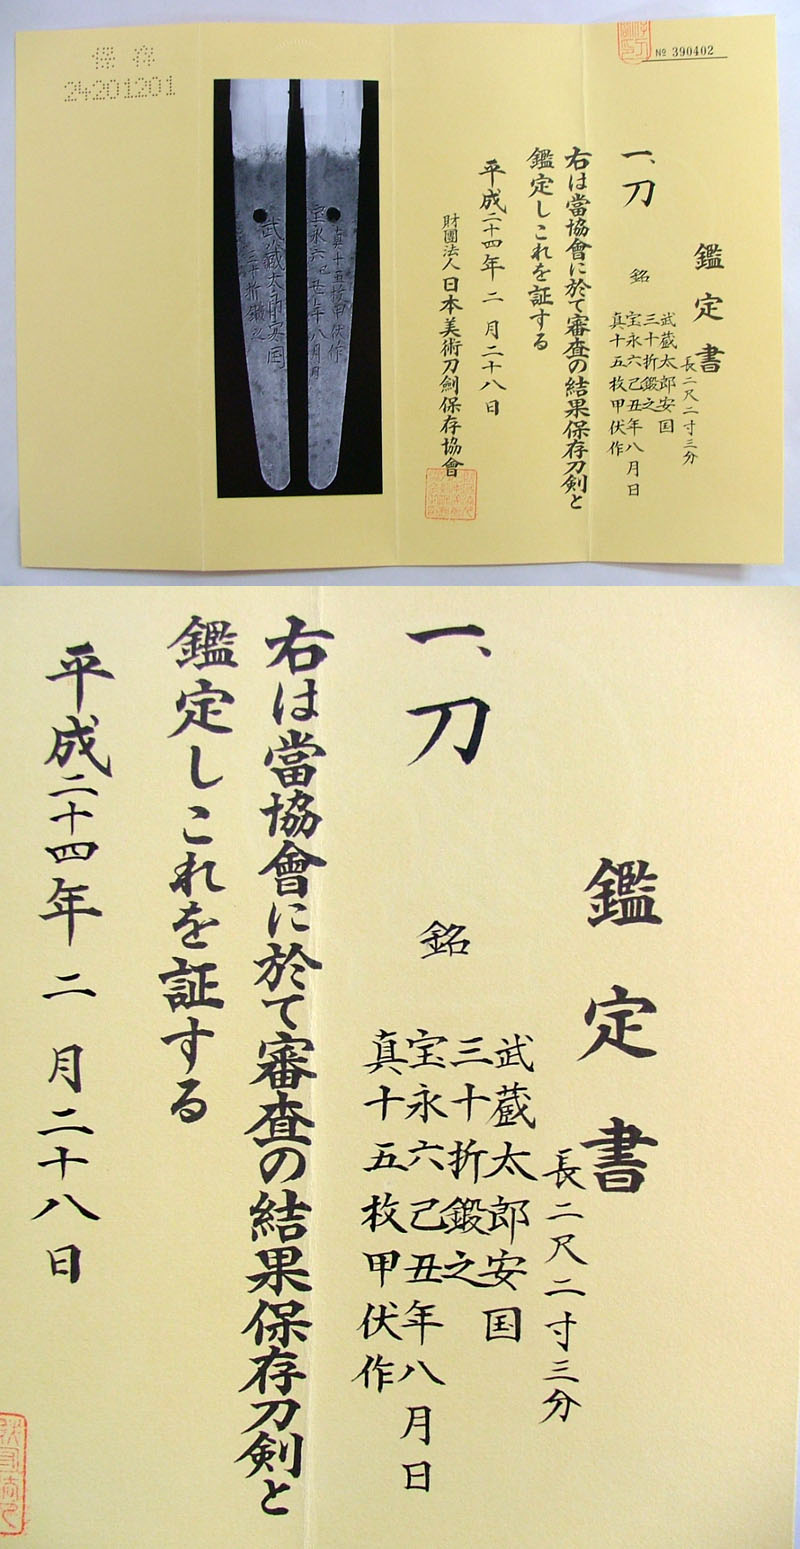 保存
24201201
№ 390402
鑑定書
長二尺二寸三分
一、刀
銘
武蔵太郎安国
三十折鍛之
宝永六己丑年八月日
真十五枚甲伏作
右は當協會に於て審査の結果保存刀剣と
鑑定しこれを証する
平成二十四年二月二十八日
財團法人日本美術刀劍保存協會
真十五枚甲伏作
宝永六己丑年八月日
武蔵太郎安国
三十折鍛之
鑑定書
長二尺二寸三分
一、刀
銘
武蔵太郎安国
三十折鍛之
宝永六己丑年八月日
真十五枚甲伏作
右は當協會に於て審査の結果保存刀剣と
鑑定しこれを証する
平成二十四年二月二十八日